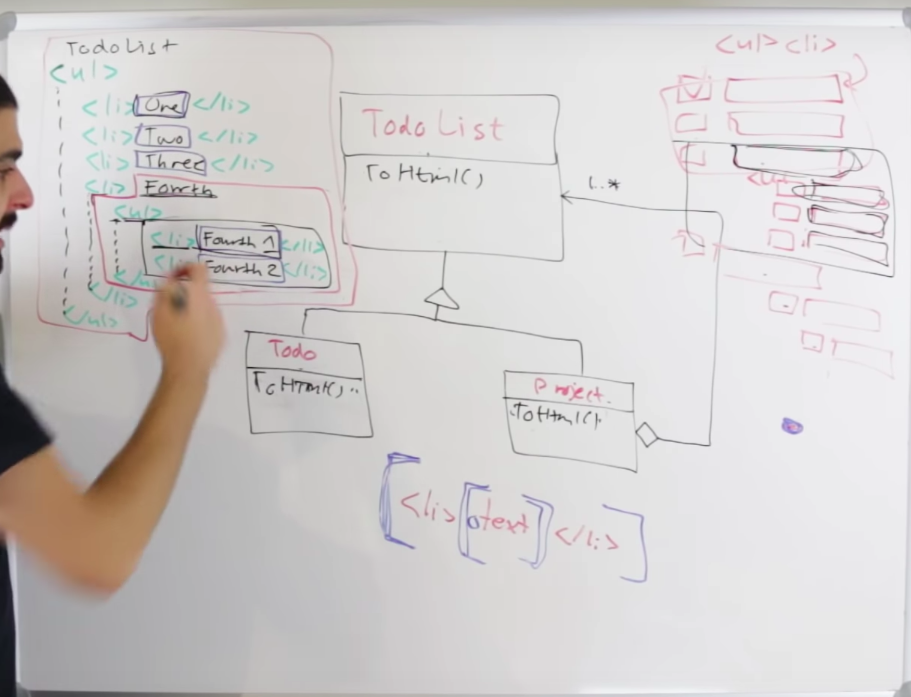 TodoList
<ul>
<li> One </li>
<li> Two </li>
<li> Three </li>
<li> Fourth
<ul>
<li> Fourth 1 </li>
<li> Fourth 2 </li>
</li>
</ul>
Todo List
ToHtml()
1..*
Todo
ToHtml()..
Project.
ToHtml()
<li> text </li>
<ul> <li>